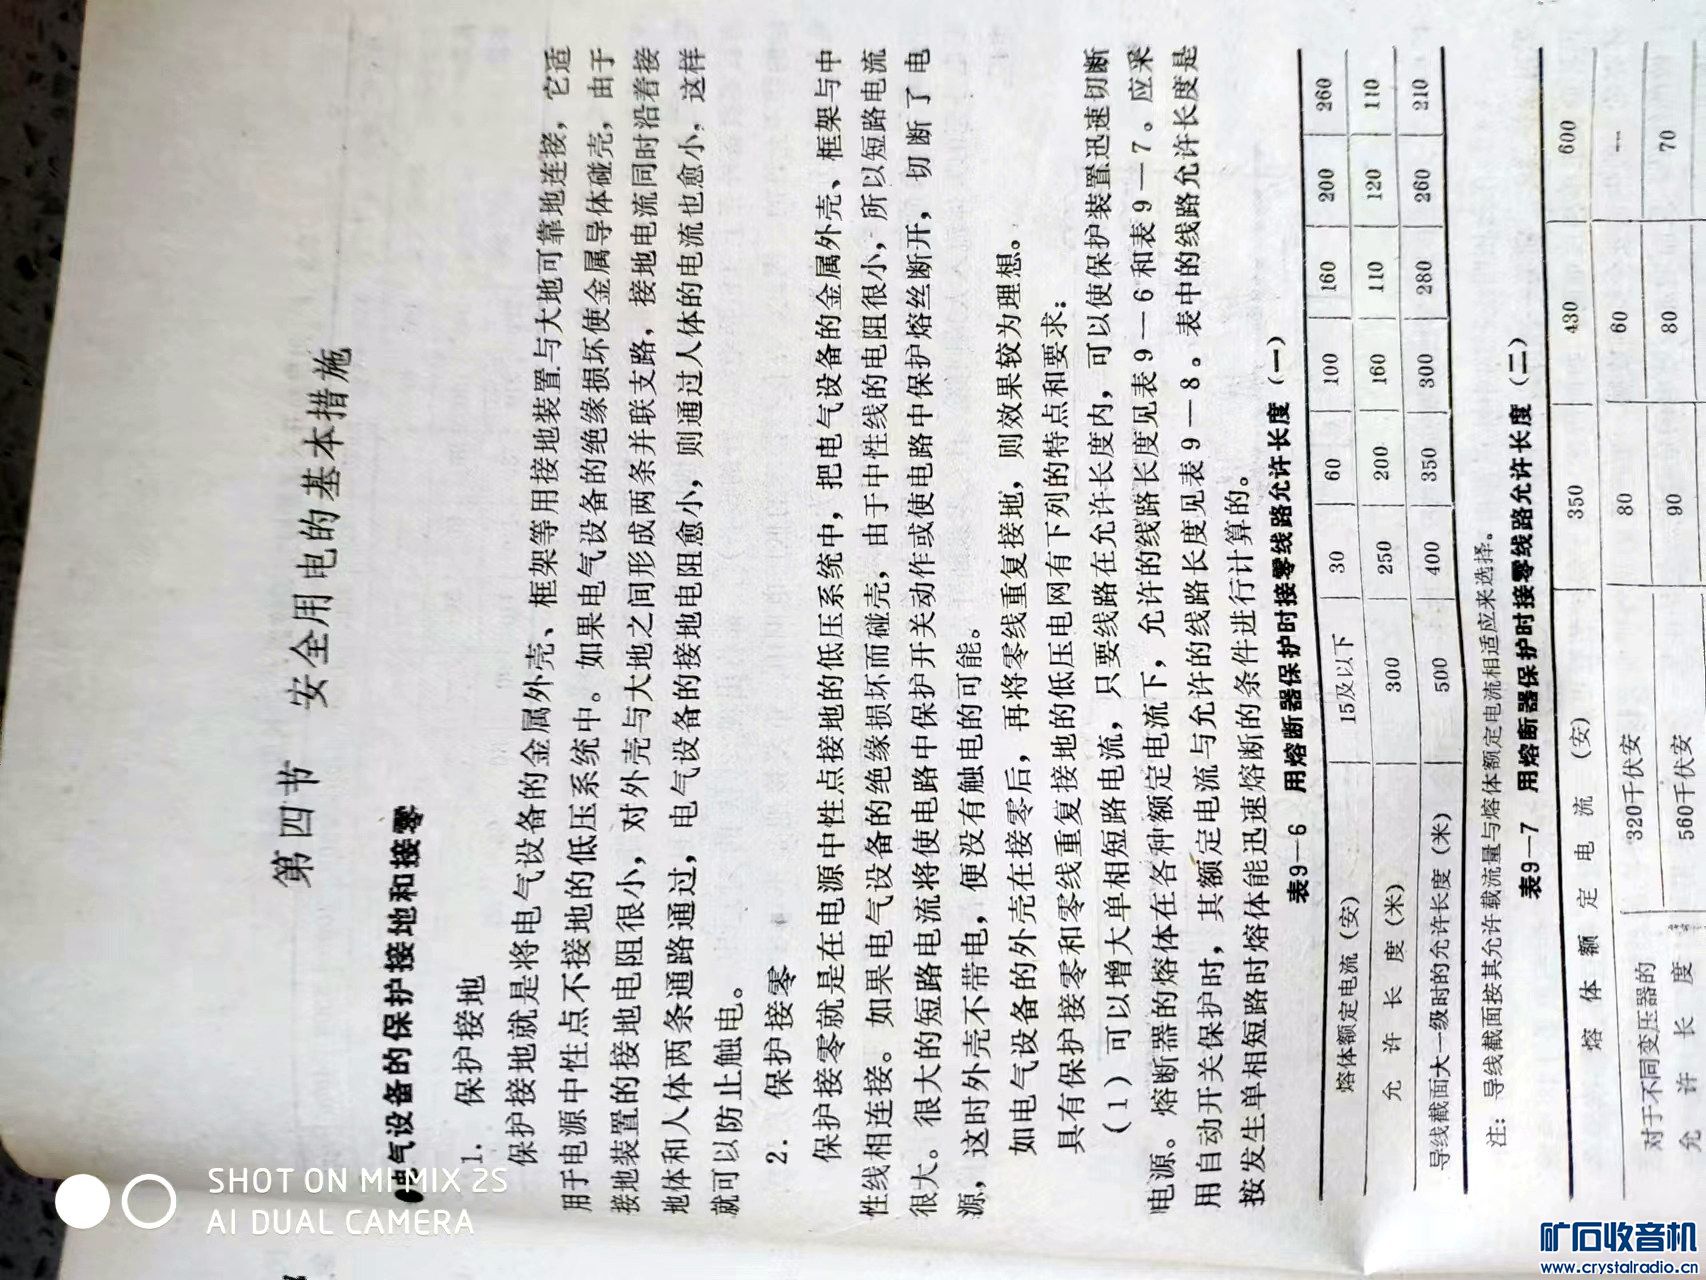 第四节 安全用电的基本措施
电气设备的保护接地和接零
1. 保护接地
保护接地就是将电气设备的金属外壳、框架等用接地装置与大地可靠地连接，它适
用于电源中性点不接地的低压系统中。如果电气设备的绝缘损坏使金属导体碰壳，由于
接地装置的接地电阻很小，对外壳与大地之间形成两条并联支路，接地电流同时沿着接
地体和人体两条通路通过，电气设备的接地电阻愈小，则通过人体的电流也愈小，这样
就可以防止触电。
2. 保护接零
保护接零就是在电源中性点接地的低压系统中，把电气设备的金属外壳、框架与中
性线相连接。如果电气设备的绝缘损坏而碰壳，由于中性线的电阻很小，所以短路电流
很大。很大的短路电流将使电路中保护开关动作或使电路中保护熔丝断开，切断了电
源，这时外壳不带电，便没有触电的可能。
如电气设备的外壳在接零后，再将零线重复接地，则效果较为理想。
具有保护接零和零线重复接地的低压电网有下列的特点和要求：
（1）可以增大单相短路电流，只要线路在允许长度内，可以使保护装置迅速切断
电源。熔断器的熔体在各种额定电流下，允许的线路长度见表9—6和表9—7。应采
用自动开关保护时，其额定电流与允许的线路长度见表9—8。表中的线路允许长度是
按发生单相短路时熔体能迅速熔断的条件进行计算的。
表9—6 用熔断器保护时接零线路允许长度（一）
熔体额定电流（安） 15及以下 30 60 100 160 200 260
允许长度（米） 300 250 200 160 110 120 110
导线截面大一级时的允许长度（米） 500 400 350 300 280 260 210
注：导线截面按其允许载流量与熔体额定电流相适应来选择。
表9—7 用熔断器保护时接零线路允许长度（二）
熔体额定电流（安） 350 430 600
对于不同变压器的 320千伏安 80 60 —
允许长度 560千伏安 90 80 70
SHOT ON MI MIX 2S
AI DUAL CAMERA
矿石收音机
www.crystalradio.cn